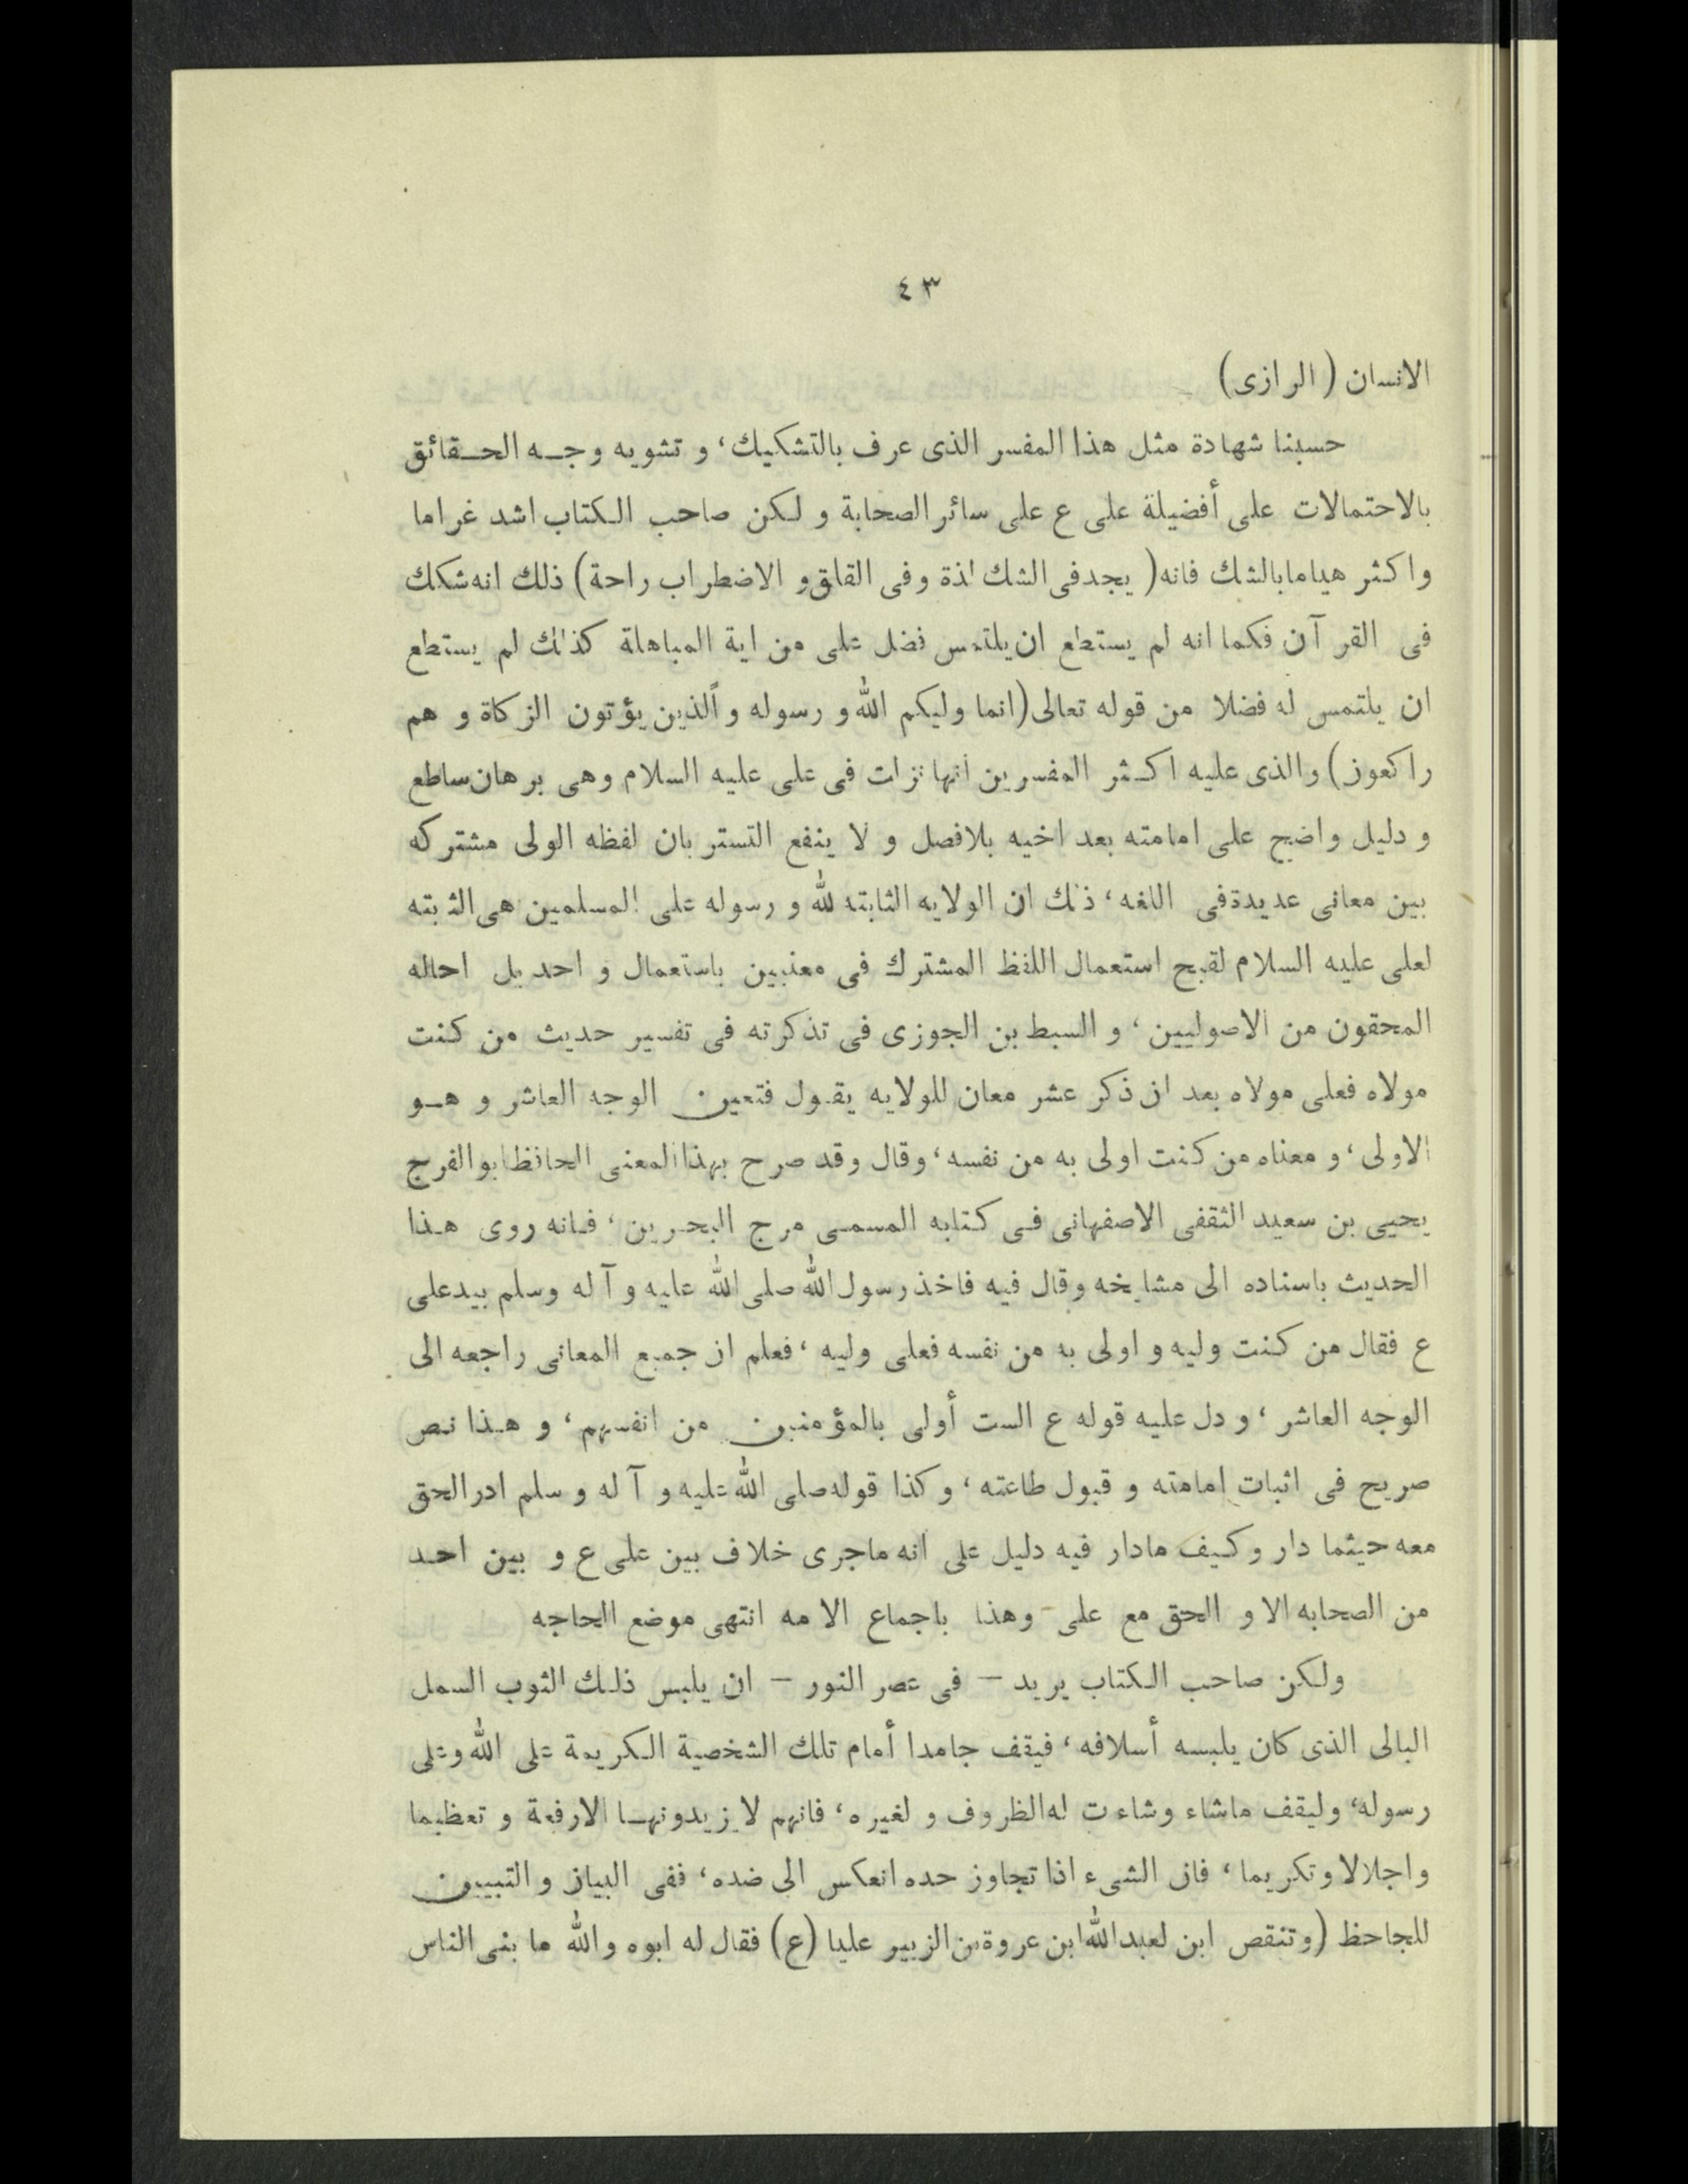 ٤٣
الانسان (الرازى)
حسبنا شهادة مثل هذا المفسر الذى عرف بالتشكيك، و تشويه وجه الحقائق
بالاحتمالات على أفضيلة على ع على سائر الصحابة و لكن صاحب الكتاب اشد غراما
واكثر هياما بالشك فانه (يجد فى الشك لذة وفى القلق و الاضطراب راحة) ذلك انه شكك
فى القرآن فكما انه لم يستطع ان يلتمس فضل على من اية المباهلة كذلك لم يستطع
ان يلتمس له فضلا من قوله تعالى (انما وليكم الله و رسوله و ألذين يؤتون الزكاة و هم
راكعون) والذى عليه اكثر المفسرين انها نزلت فى على عليه السلام وهى برهان ساطع
و دليل واضح على امامته بعد اخيه بلافصل و لا ينفع التستر بان لفظه الولى مشتركه
بين معانى عديدة فى اللغه، ذلك ان الولايه الثابته لله و رسوله على المسلمين هى الثابته
لعلى عليه السلام لقبح استعمال اللفظ المشترك فى معنيين باستعمال واحد بل احاله
المحقون من الاصوليين، و السبط بن الجوزى فى تذكرته فى تفسير حديث من كنت
مولاه فعلى مولاه بعد ان ذكر عشر معان للولايه يقول فتعين الوجه العاشر و هو
الاولى، و معناه من كنت اولى به من نفسه، وقال وقد صرح بهذا المعنى الحافظ ابو الفرج
يحيى بن سعيد الثقفى الاصفهانى فى كتابه المسمى مرج البحرين، فانه روى هذا
الحديث باسناده الى مشايخه وقال فيه فاخذ رسول الله صلى الله عليه و آله وسلم بيد على
ع فقال من كنت وليه و اولى به من نفسه فعلى وليه، فعلم ان جميع المعانى راجعه الى
الوجه العاشر، و دل عليه قوله ع الست أولى بالمؤمنين من انفسهم، و هذا نص
صريح فى اثبات امامته و قبول طاعته، و كذا قوله صلى الله عليه و آله و سلم ادر الحق
معه حيثما دار وكيف مادار فيه دليل على انه ماجرى خلاف بين على ع و بين احد
من الصحابه الا و الحق مع على - وهذا باجماع الامه انتهى موضع الحاجه
ولكن صاحب الكتاب يريد – فى عصر النور – ان يلبس ذلك الثوب السمل
البالى الذى كان يلبسه أسلافه، فيقف جامدا أمام تلك الشخصية الكريمة على الله وعلى
رسوله، وليقف ماشاء وشاءت له الظروف و لغيره، فانهم لايزيدونها الارفعة و تعظيما
واجلالا وتكريما، فان الشىء اذا تجاوز حده انعكس الى ضده، ففى البيان و التبيين
للجاحظ (وتنقص ابن لعبدالله ابن عروة بن الزبير عليا (ع) فقال له ابوه والله ما بنى الناس